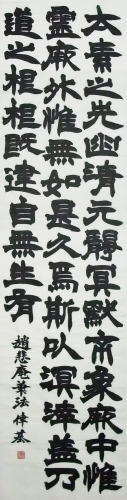 太素之先幽清元靜冥默象厥中惟
靈厥外惟無如是久焉斯以溟涬蓋乃
道之根根既建自無生有
趙悲庵筆法